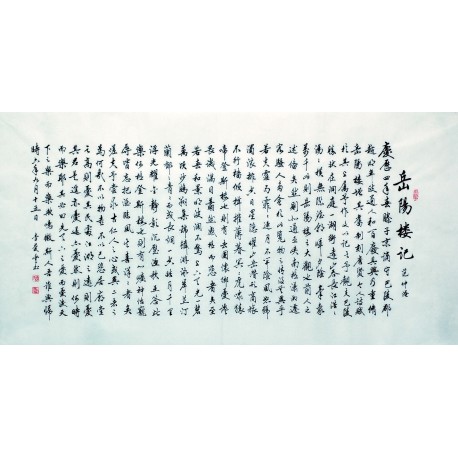 岳陽楼記 范仲淹
慶歷四年春滕子京謫守巴陵郡
越明年政通人和百廢具興乃重修
岳陽楼增其舊制刻唐賢今人詩賦
於其上屬予作文以記之予觀夫巴陵
勝狀在洞庭一湖銜遠山吞長江浩浩
湯湯橫無際涯朝暉夕陰氣象
萬千此則岳陽楼之大觀也前人之
述備矣然則北通巫峽南極瀟湘遷
客騷人多會於此覽物之情得無異乎
若夫霪雨霏霏連月不開陰風怒號
濁浪排空日星隱曜山岳潛形商旅
不行檣傾楫摧薄暮冥冥虎嘯猿
啼登斯楼也則有去國懷鄉憂讒
畏譏滿目蕭然感極而悲者矣至
若春和景明波瀾不驚上下天光一碧
萬頃沙鷗翔集錦鱗游泳岸芷汀
蘭郁郁青青而或長煙一空皓月千里
浮光躍金靜影沉璧漁歌互答此
樂何極登斯楼也則有心曠神怡寵
辱皆忘把酒臨風其喜洋洋者矣
嗟夫予嘗求古仁人之心或異二者之
為何哉不以物喜不以己悲居廟堂
之高則憂其民處江湖之遠則憂
其君是進亦憂退亦憂然則何時
而樂耶其必曰先天下之憂而憂後天
下之樂而樂歟噫微斯人吾誰與歸
時六年九月十五日